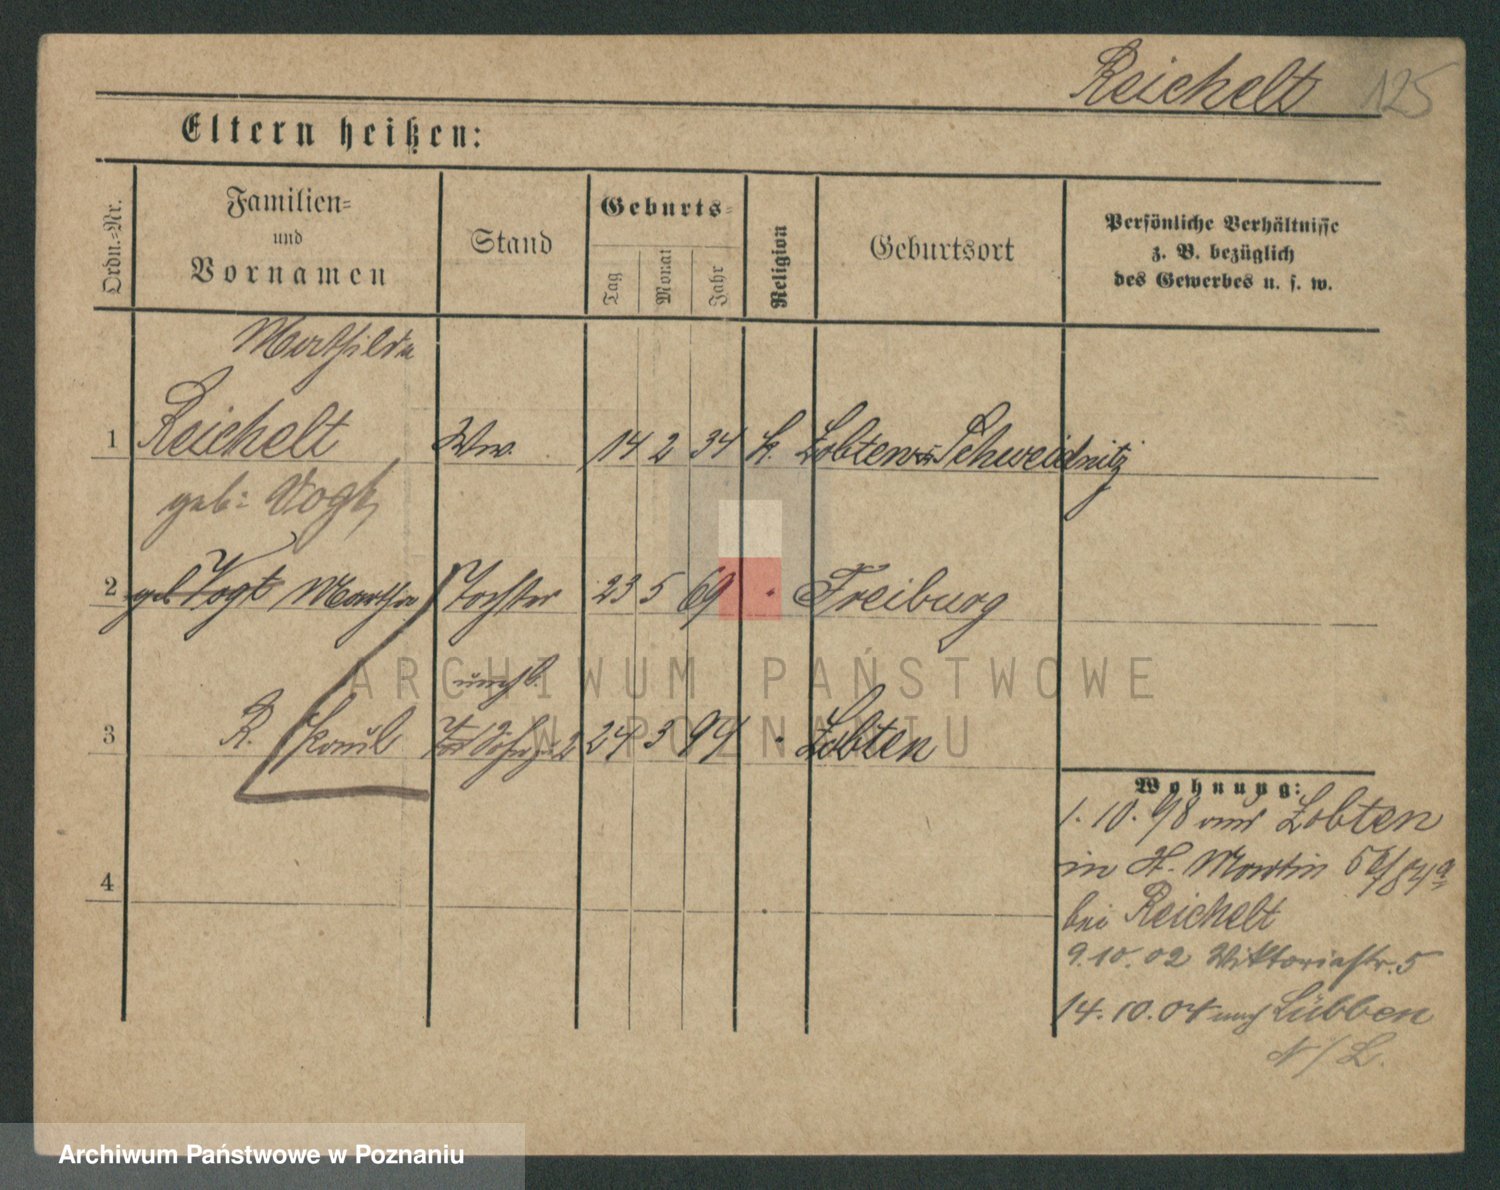 Reichelt 125
Eltern heißen:
Ordn.-Nr.
Familien-
und
Vornamen
Stand
Geburts-
Tag
Monat
Jahr
Religion
Geburtsort
Persönliche Verhältnisse
z. B. bezüglich
des Gewerbes u. s. w.
Mathilda
1 Reichelt Ww. 14 2 34 k. Zobten Schweidnitz
geb: Vogt
2 geb Vogt Martha Tochter 23 5 69 " Freiburg
unehl.
3 R. Paul 24 3 94 " Zobten
4
Wohnung:
1. 10. 98 aus Zobten
in St. Martin
bei Reichelt
9. 10. 02 Viktoriastr. 5
14. 10. 04 nach Lübben
N/L.
ARCHIWUM PAŃSTWOWE
W POZNANIU
Archiwum Państwowe w Poznaniu